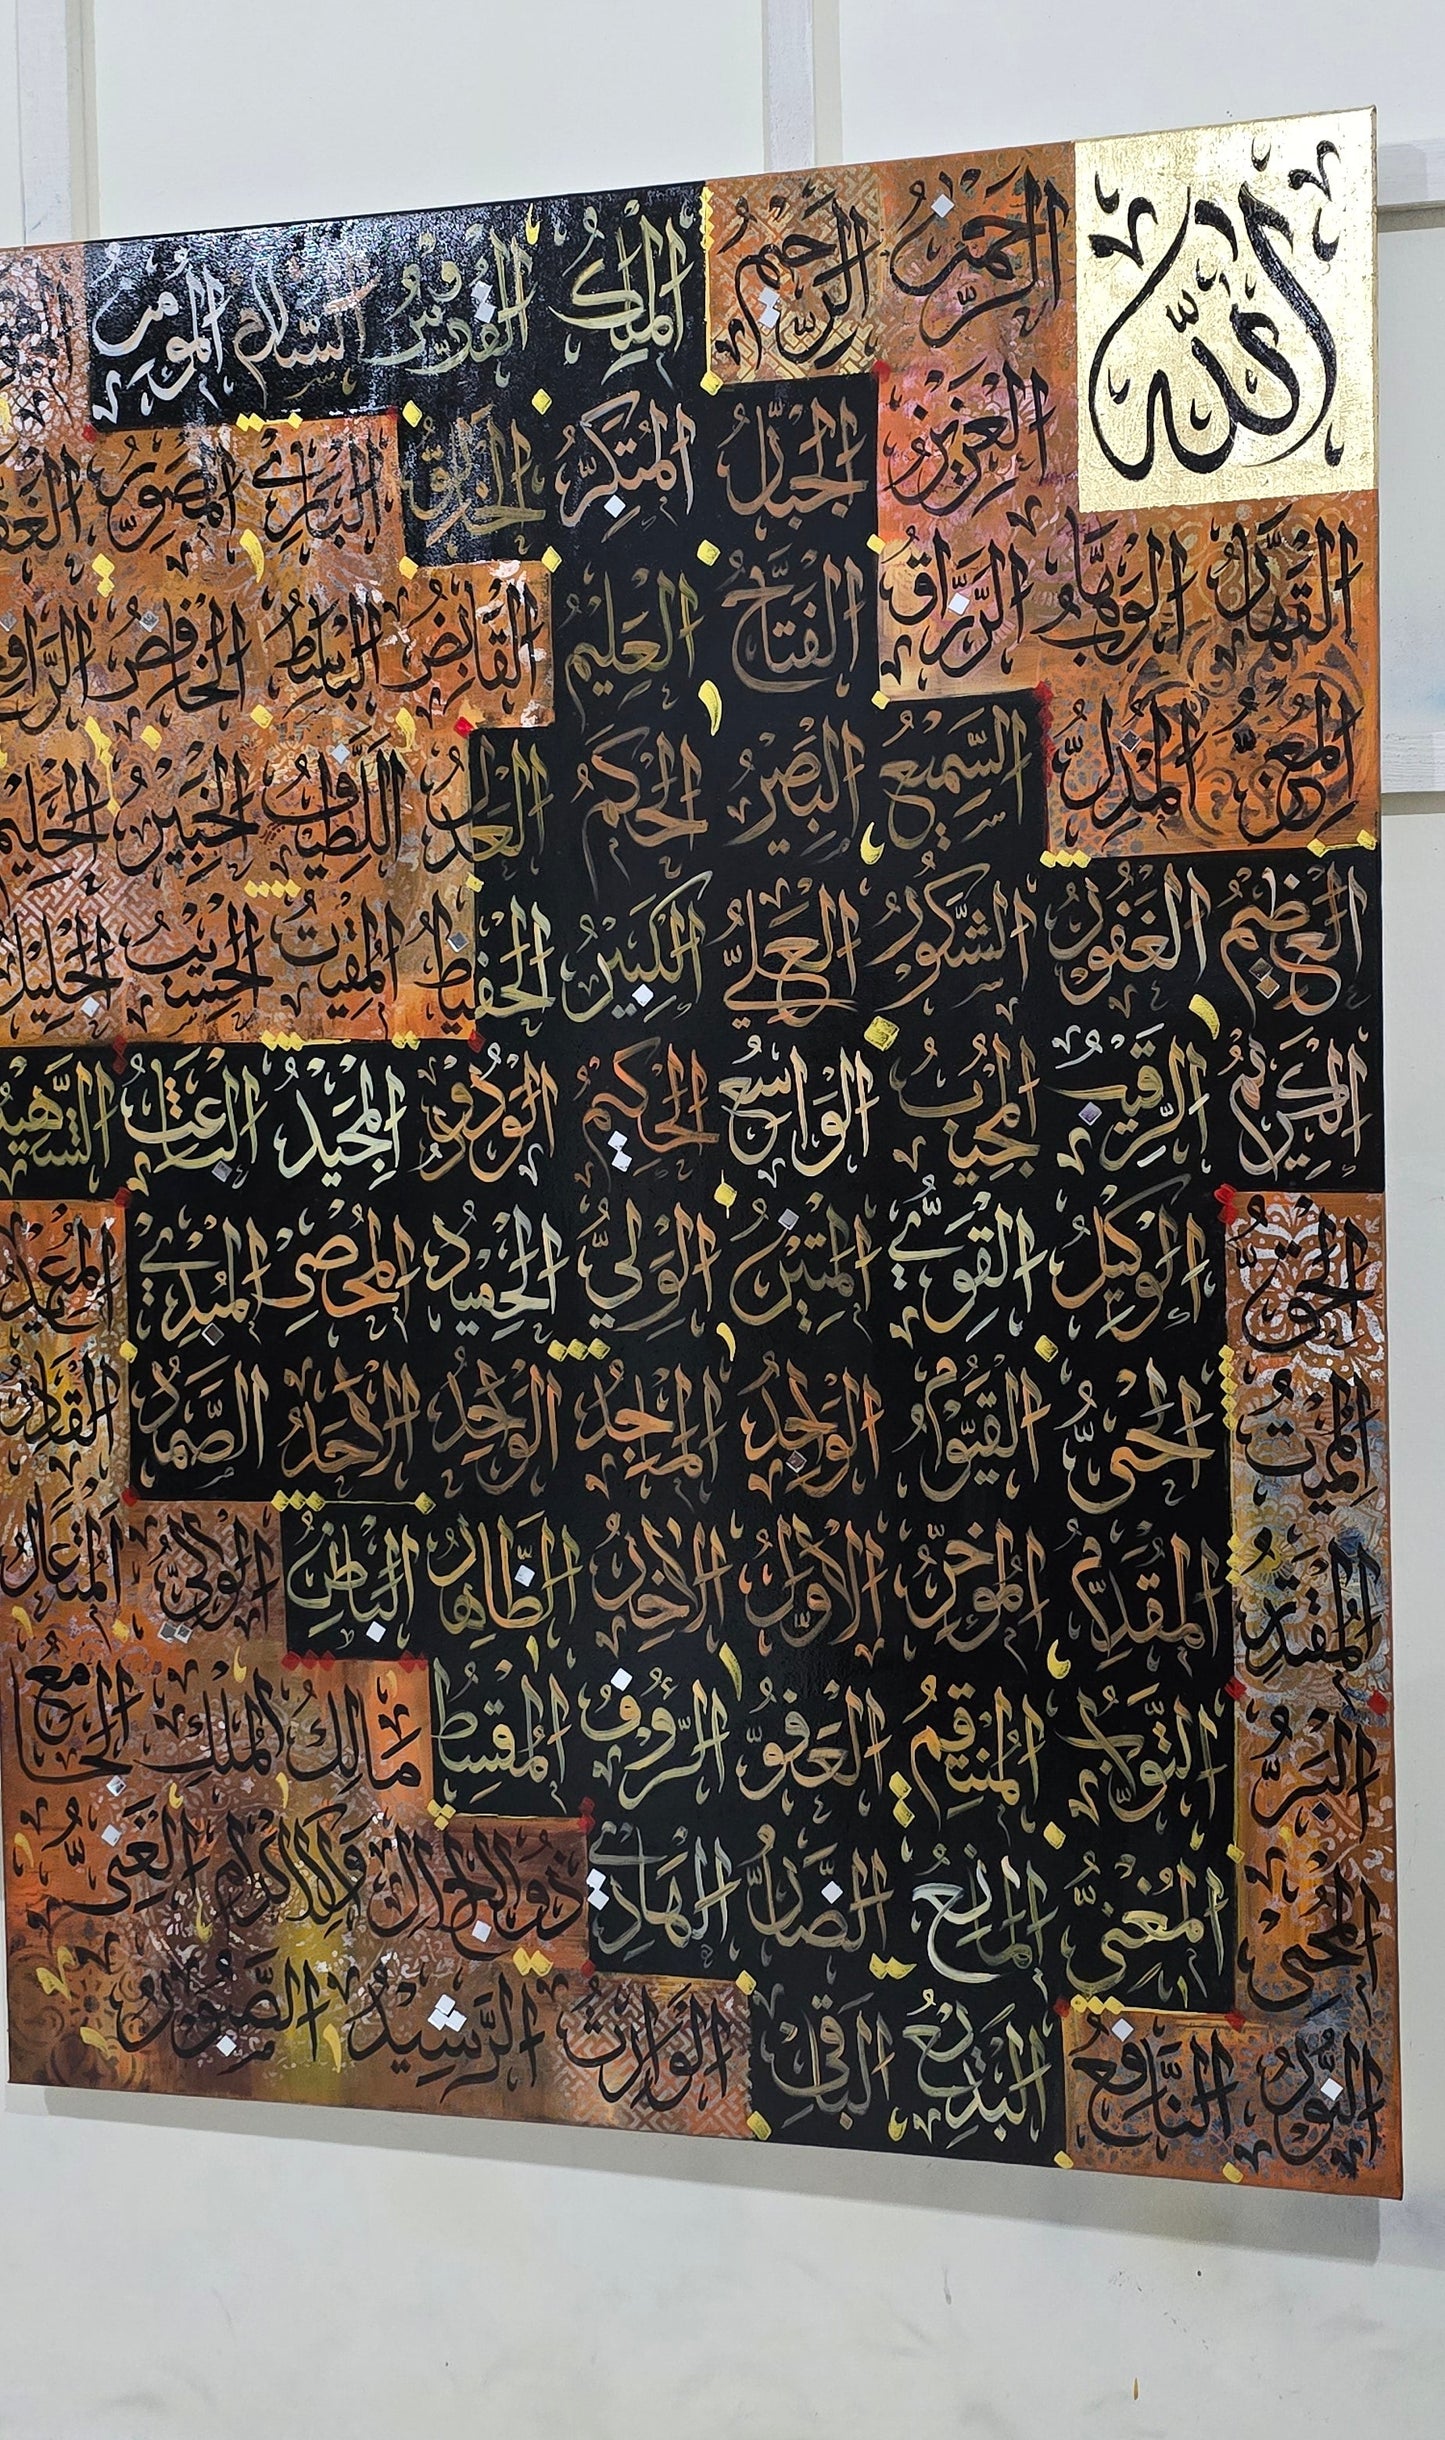 الله الرَّحْمَنُ الرَّحِيمُ المَلِكُ القُدُّوسُ السَّلَامُ المُؤْمِنُ
العَزِيزُ الجَبَّارُ المُتَكَبِّرُ الخَالِقُ البَارِئُ المُصَوِّرُ
القَهَّارُ الوَهَّابُ الرَّزَّاقُ الفَتَّاحُ العَلِيمُ القَابِضُ البَاسِطُ الخَافِضُ الرَّافِعُ
المُعِزُّ المُذِلُّ السَّمِيعُ البَصِيرُ الحَكَمُ العَدْلُ اللَّطِيفُ الخَبِيرُ الحَلِيمُ
العَظِيمُ الغَفُورُ الشَّكُورُ العَلِيُّ الكَبِيرُ الحَفِيظُ المُقِيتُ الحَسِيبُ الجَلِيلُ
الكَرِيمُ الرَّقِيبُ المُجِيبُ الوَاسِعُ الحَكِيمُ الوَدُودُ المَجِيدُ البَاعِثُ الشَّهِيدُ
الحَقُّ الوَكِيلُ القَوِيُّ المَتِينُ الوَلِيُّ الحَمِيدُ المُحْصِي المُبْدِئُ المُعِيدُ
المُمِيتُ الحَيُّ القَيُّومُ الوَاجِدُ المَاجِدُ الوَاحِدُ الأَحَدُ الصَّمَدُ القَادِرُ
المُقْتَدِرُ المُقَدِّمُ المُؤَخِّرُ الأَوَّلُ الآخِرُ الظَّاهِرُ البَاطِنُ الوَالِي المُتَعَالُ
البَرُّ التَّوَّابُ المُنْتَقِمُ العَفُوُّ الرَّؤُوفُ المُقْسِطُ مَالِكُ المُلْكِ الجَامِعُ
المُحْيِي المُغْنِي المَانِعُ الضَّارُّ الهَادِي ذُو الجَلَالِ وَالإِكْرَامِ الغَنِيُّ
النُّورُ النَّافِعُ البَدِيعُ البَاقِي الوَارِثُ الرَّشِيدُ الصَّبُورُ